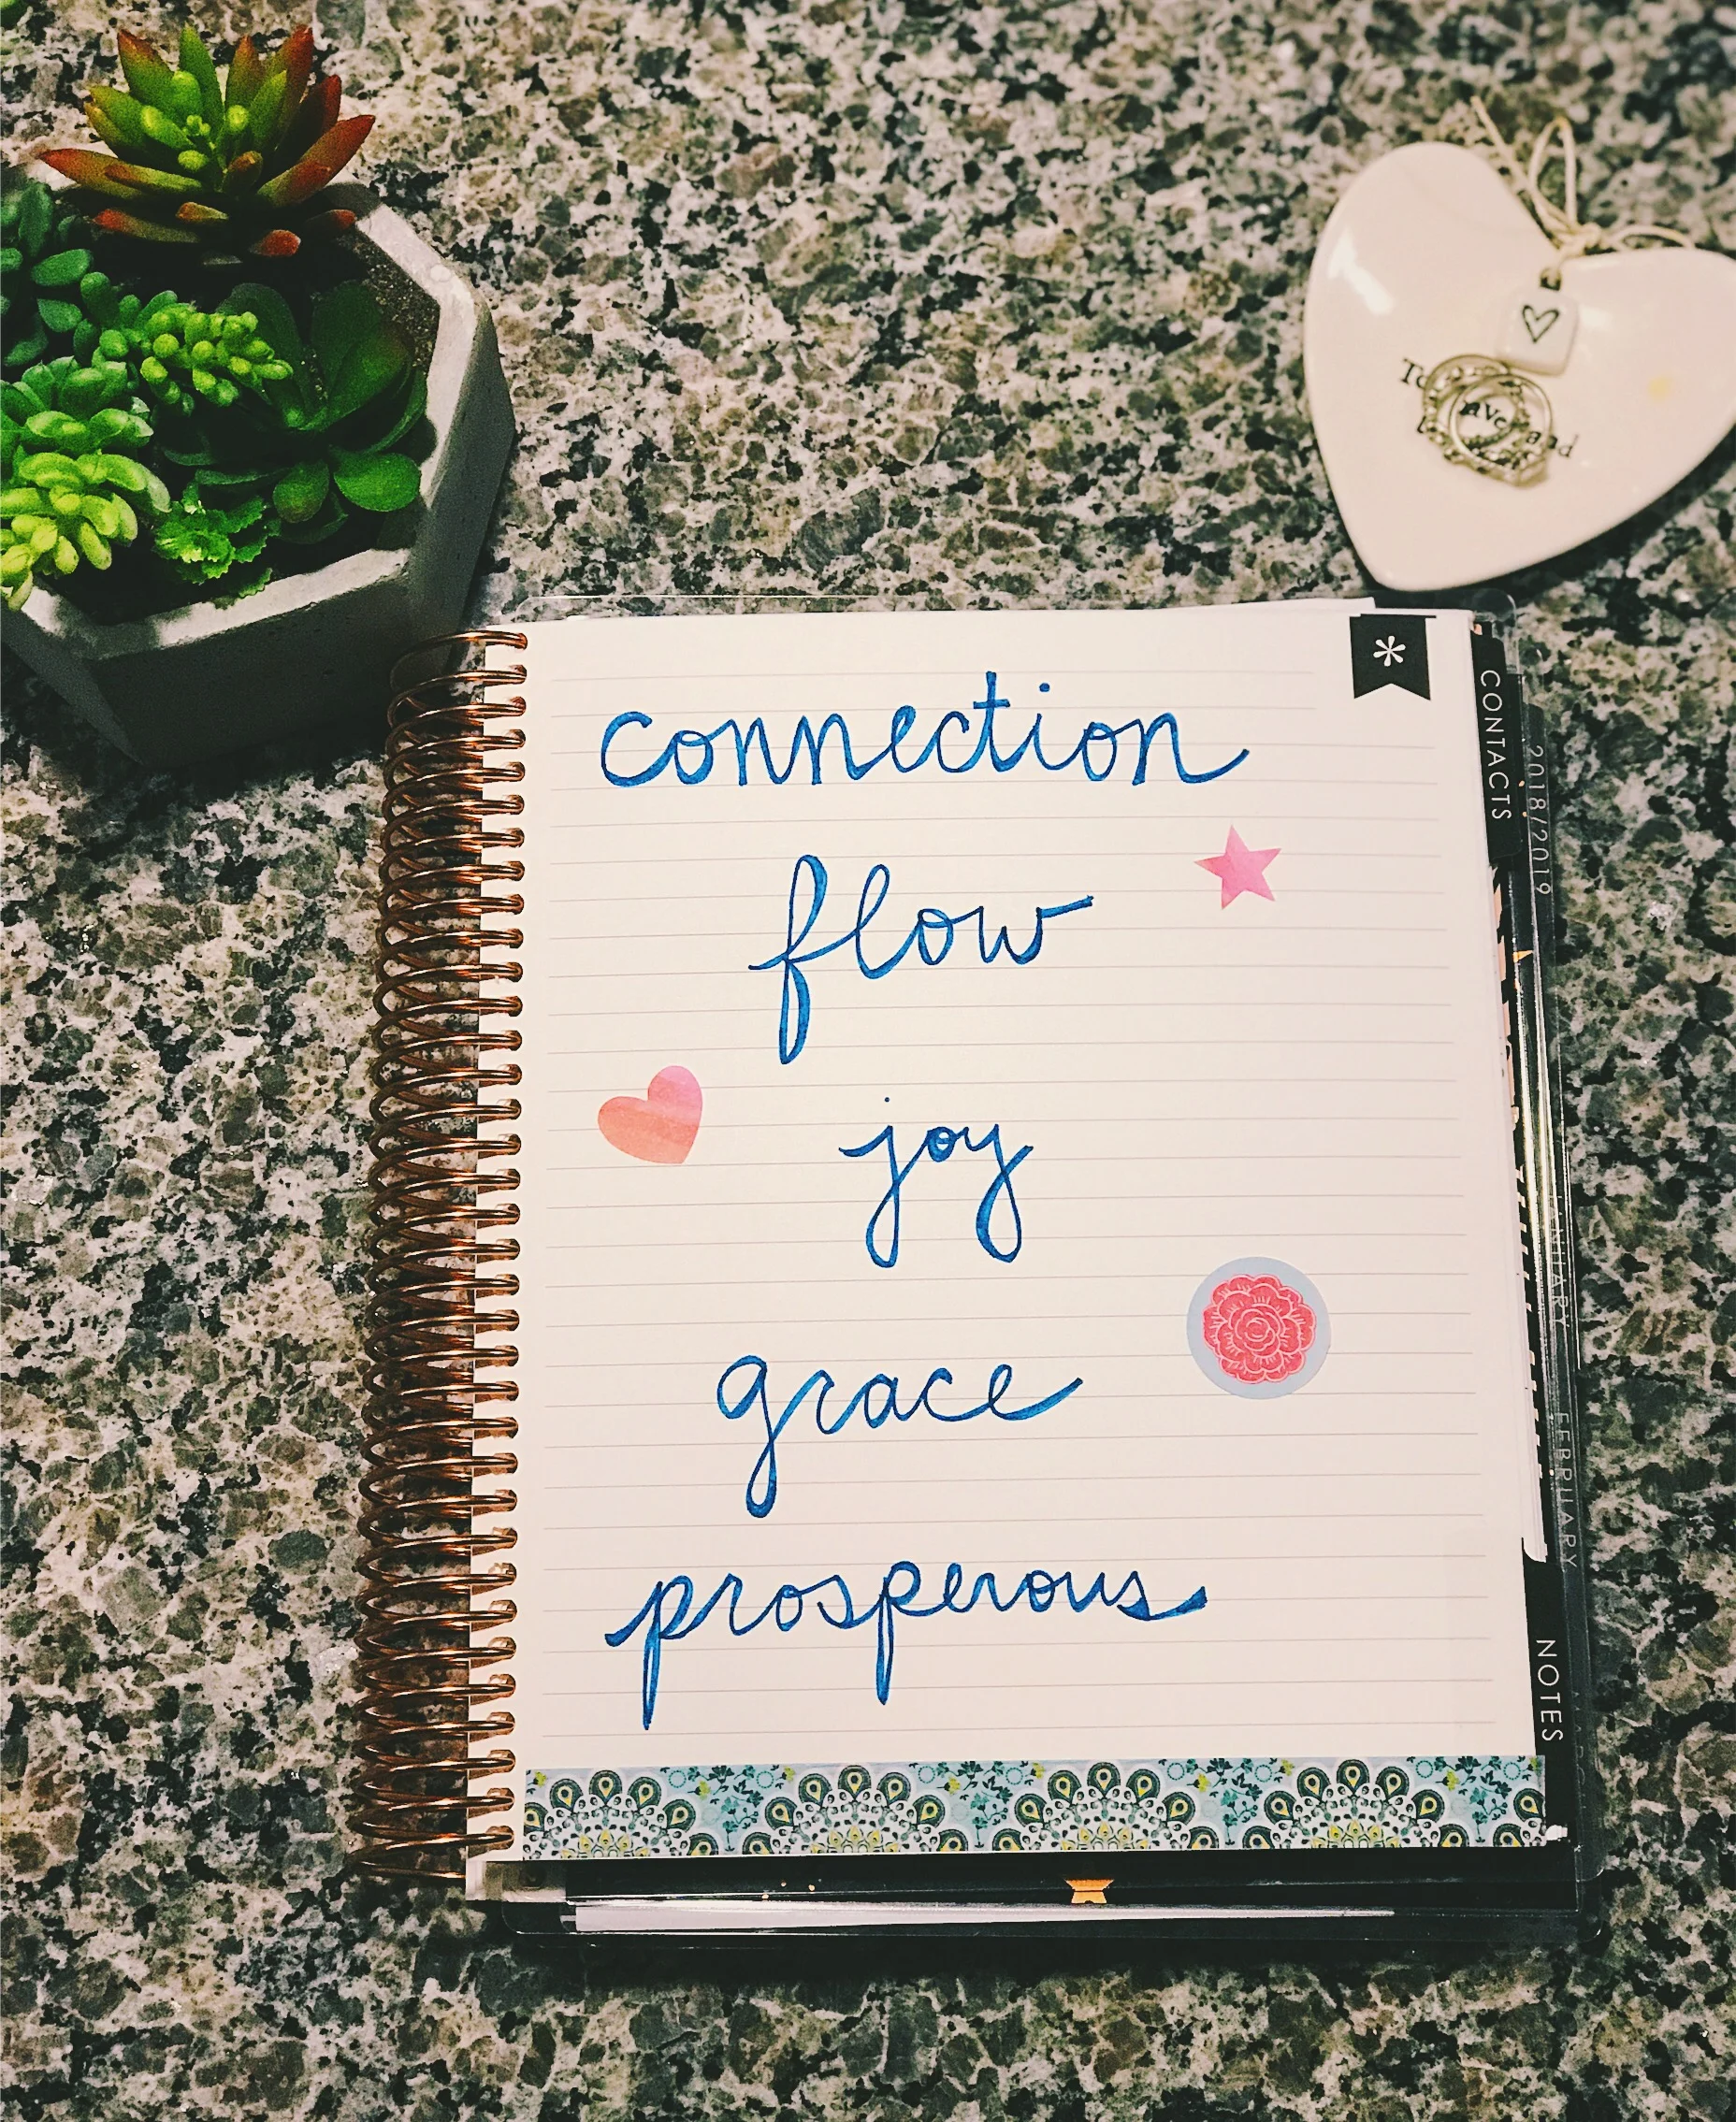 connection
flow
joy
grace
prosperous
*
CONTACTS
2018/2019
FEBRUARY
NOTES